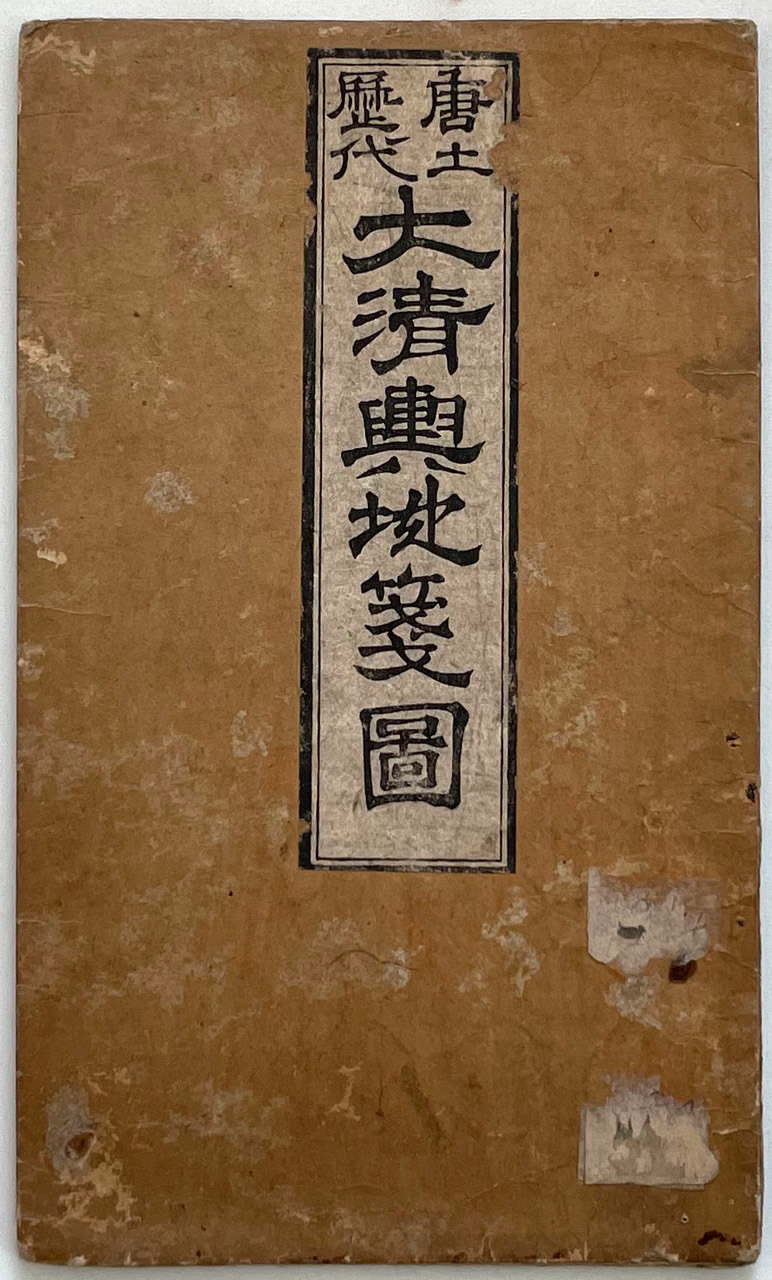 唐土
歷代
大清輿地箋圖